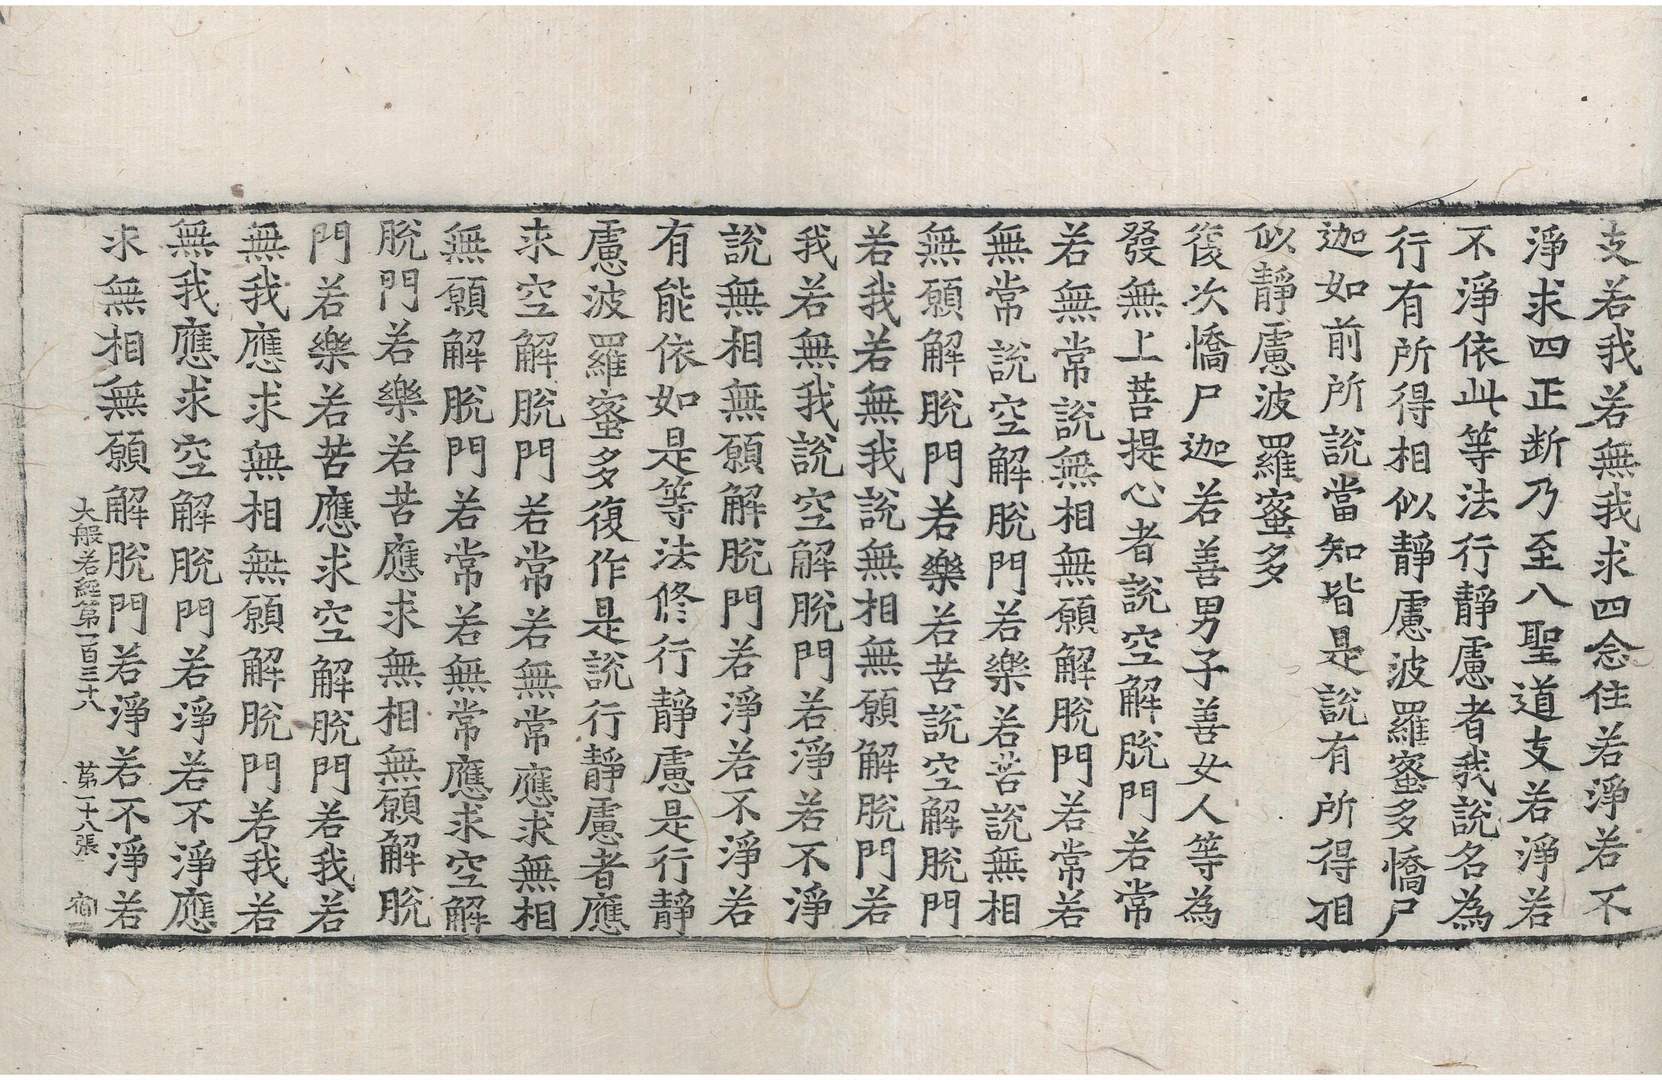 支若我若無我求四念住若淨若不
淨求四正断乃至八聖道支若淨若
不淨依此等法行靜慮者我說名為
行有所得相似靜慮波羅蜜多憍尸
迦如前所說當知皆是說有所得相
似靜慮波羅蜜多
復次憍尸迦若善男子善女人等為
發無上菩提心者說空解脫門若常
若無常說無相無願解脫門若常若
無常說空解脫門若樂若苦說無相
無願解脫門若樂若苦說空解脫門
若我若無我說無相無願解脫門若
我若無我說空解脫門若淨若不淨
說無相無願解脫門若淨若不淨若
有能依如是等法修行靜慮是行靜
慮波羅蜜多復作是說行靜慮者應
求空解脫門若常若無常應求無相
無願解脫門若常若無常應求空解
脫門若樂若苦應求無相無願解脫
門若樂若苦應求空解脫門若我若
無我應求無相無願解脫門若我若
無我應求空解脫門若淨若不淨應
求無相無願解脫門若淨若不淨若
大般若經第一百三十八 第十八張 宿